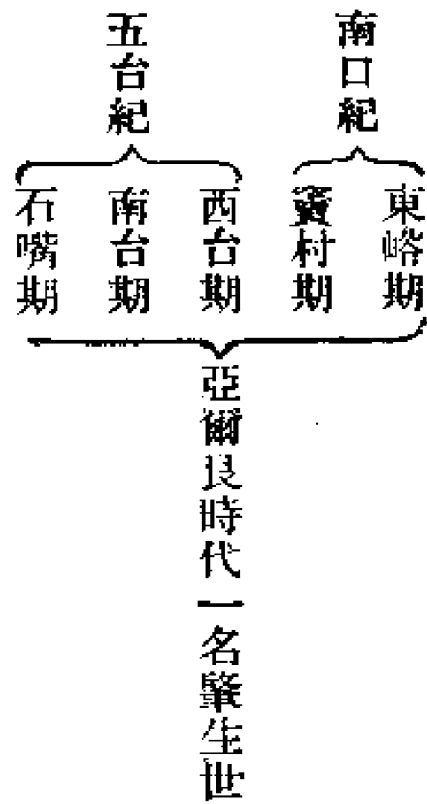 南口紀
東峪期
竇村期
五台紀
西台期
南台期
石嘴期
亞爾艮時代一名肇生世